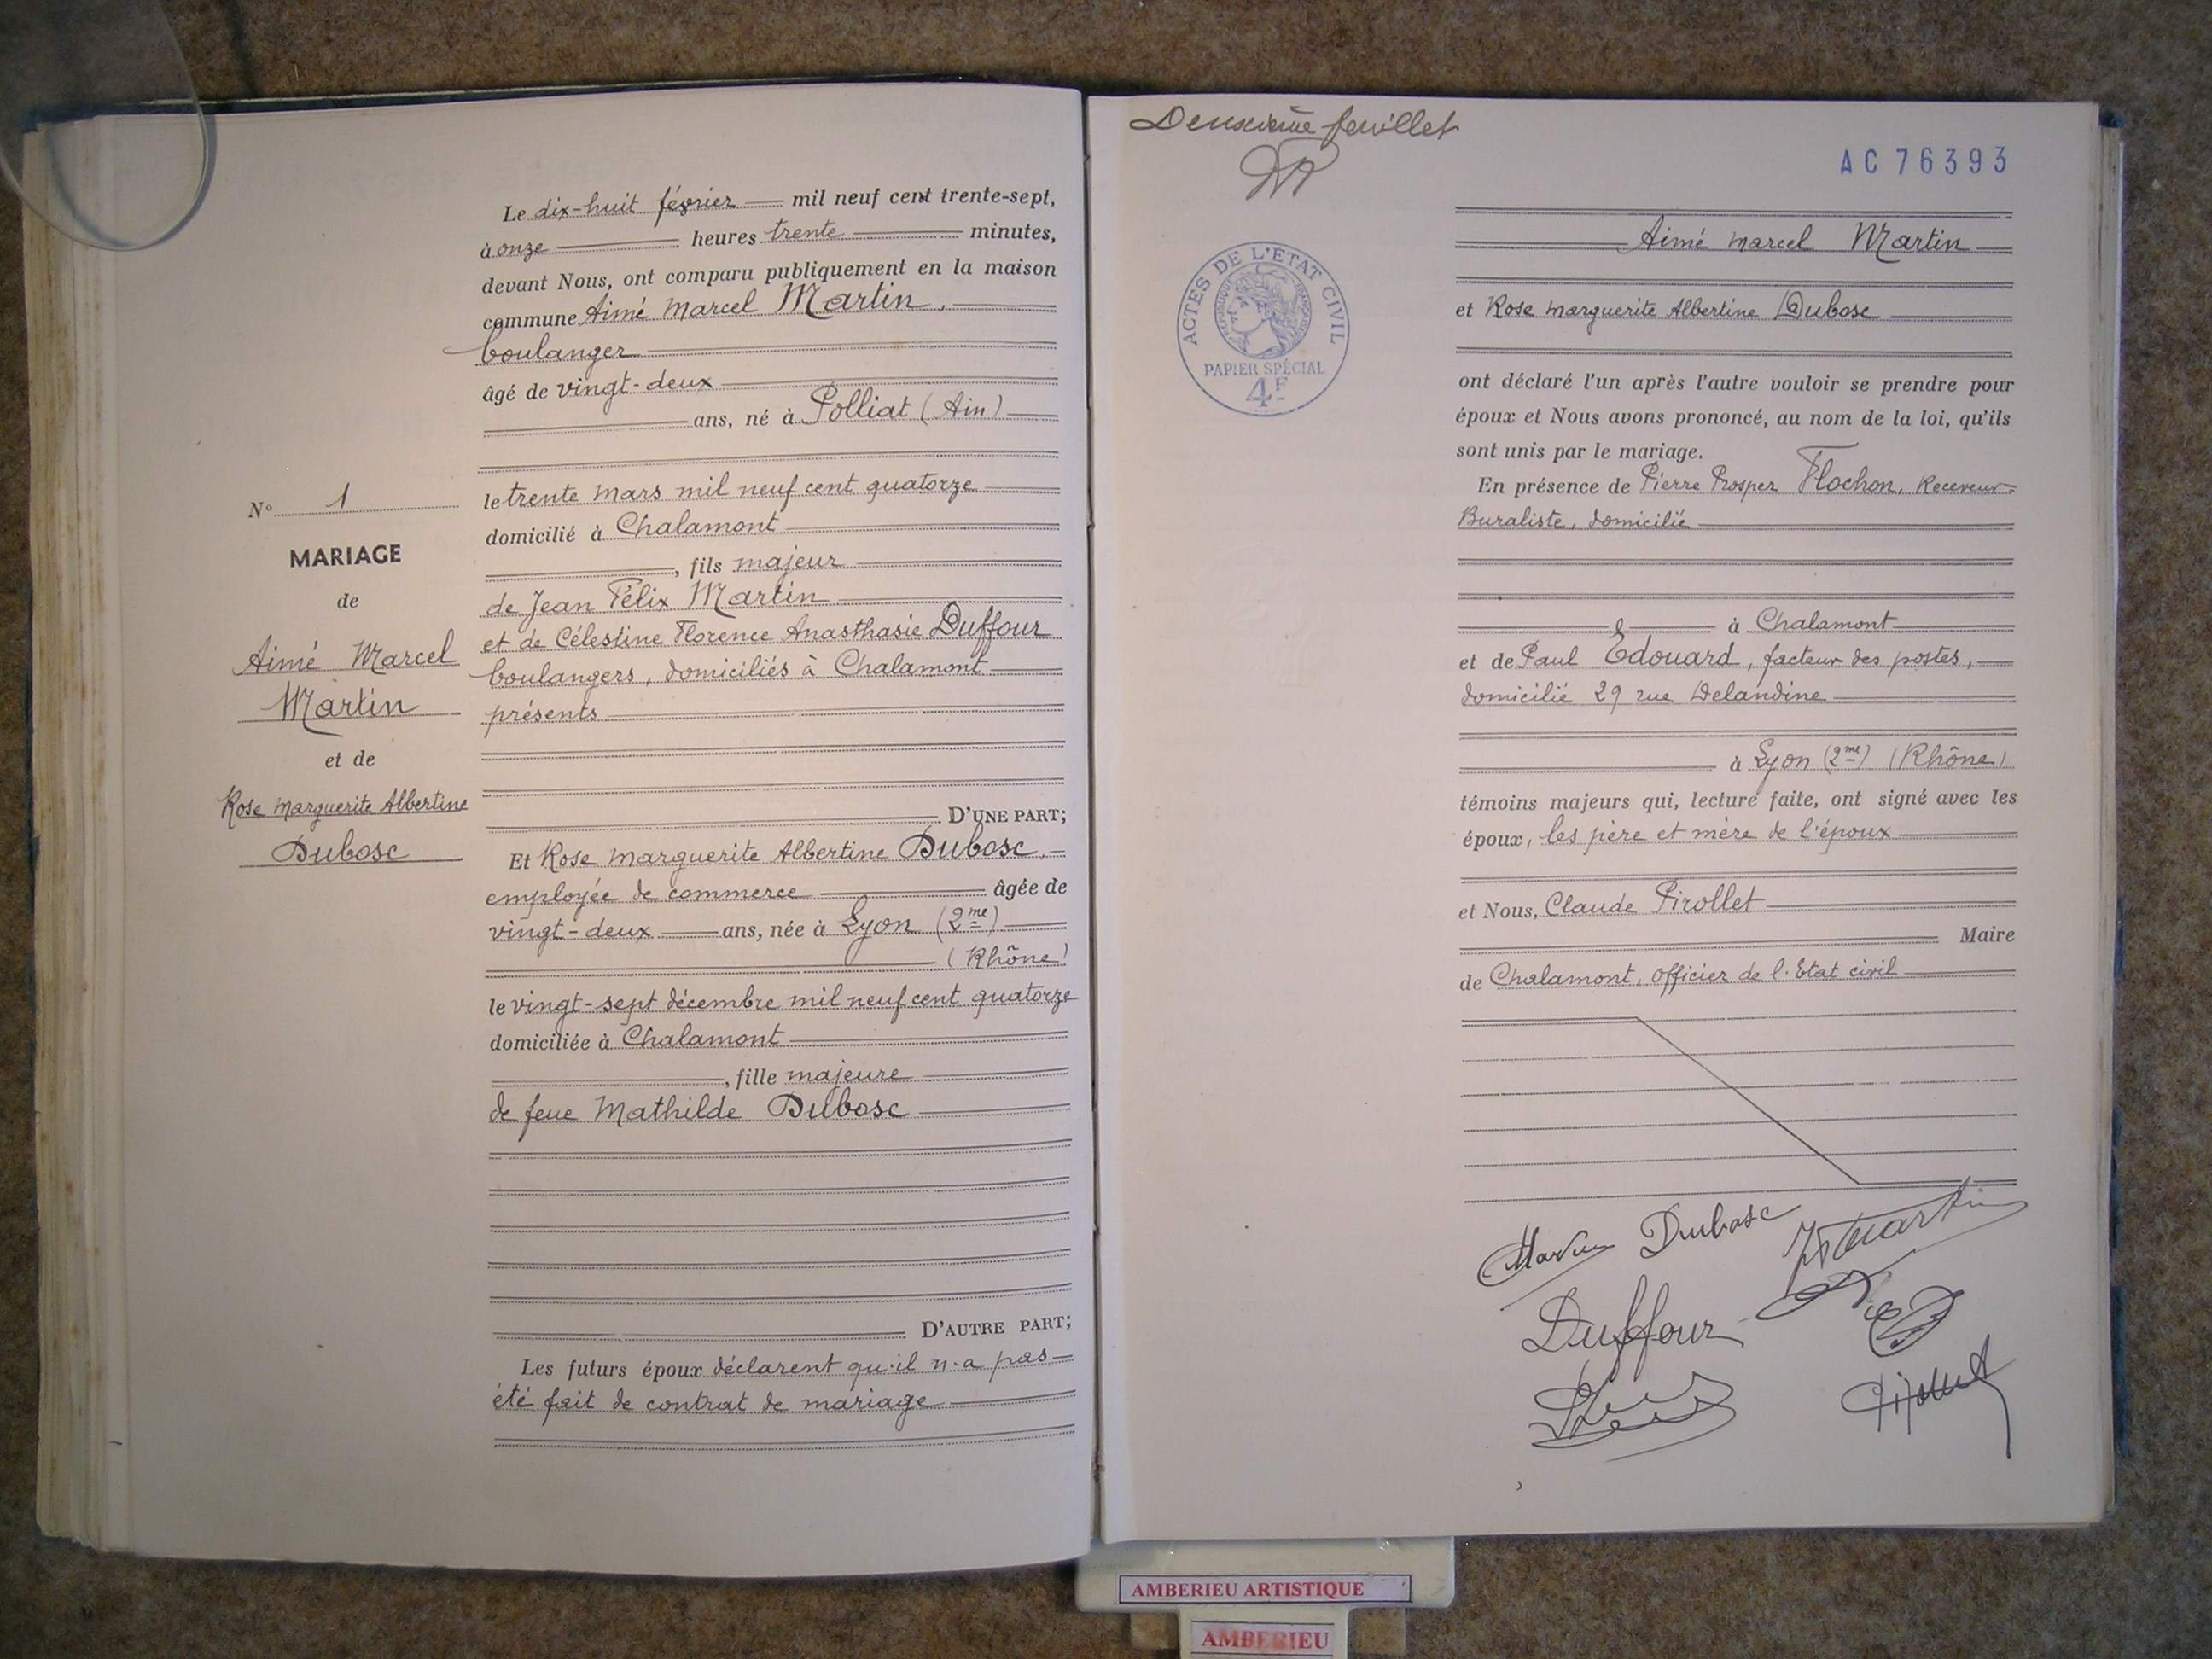 Le dix-huit février mil neuf cent trente-sept,
à onze heures trente minutes,
devant Nous, ont comparu publiquement en la maison
commune Aimé Marcel Martin,
boulanger
âgé de vingt-deux
ans, né à Polliat (Ain)
le trente mars mil neuf cent quatorze
domicilié à Chalamont
, fils majeur
de Jean Félix Martin
et de Célestine Florence Anasthasie Duffour
boulangers, domiciliés à Chalamont
présents
D'UNE PART;
Et Rose Marguerite Albertine Dubosc,
employée de commerce âgée de
vingt-deux ans, née à Lyon (2me)
(Rhône)
le vingt-sept décembre mil neuf cent quatorze
domiciliée à Chalamont
, fille majeure
de feue Mathilde Dubosc
D'AUTRE PART;
Les futurs époux déclarent qu'il n'a pas
été fait de contrat de mariage
N° 1
MARIAGE
de
Aimé Marcel
Martin
et de
Rose Marguerite Albertine
Dubosc
Deuxième feuillet
AC 76393
ACTES DE L'ETAT CIVIL
REPUBLIQUE FRANÇAISE
PAPIER SPÉCIAL
4F
Aimé Marcel Martin
et Rose Marguerite Albertine Dubosc
ont déclaré l'un après l'autre vouloir se prendre pour
époux et Nous avons prononcé, au nom de la loi, qu'ils
sont unis par le mariage.
En présence de Pierre Prosper Flochon, Receveur-
Buraliste, domicilié
à Chalamont
et de Paul Edouard, facteur des postes,
domicilié 29 rue Delandine
à Lyon (2me) (Rhône)
témoins majeurs qui, lecture faite, ont signé avec les
époux, les père et mère de l'époux
et Nous, Claude Pirollet
Maire
de Chalamont, officier de l'Etat civil
Martin Dubosc Martin
Duffour
Pirollet
AMBERIEU ARTISTIQUE
AMBERIEU